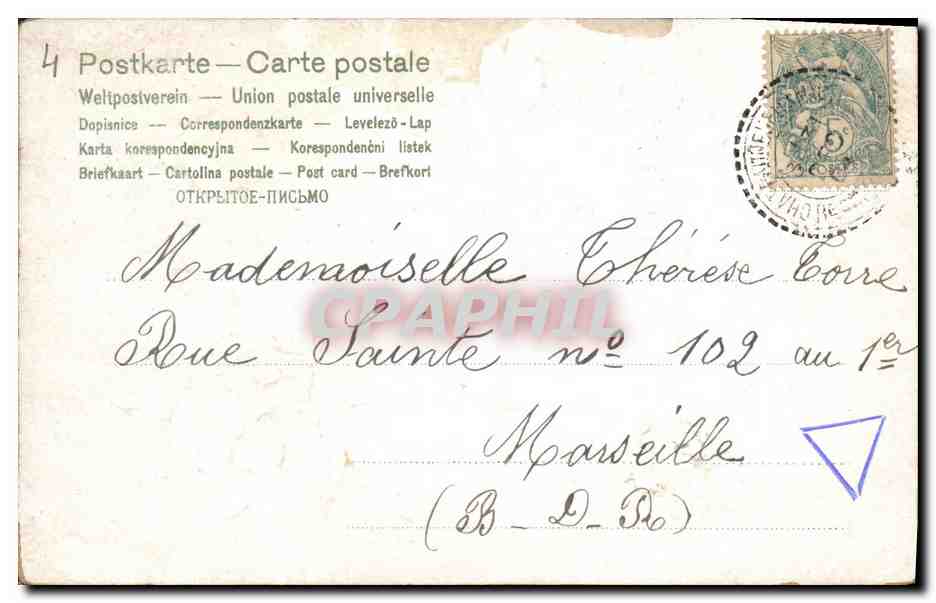 4
Postkarte — Carte postale
Weltpostverein — Union postale universelle
Dopisnice — Correspondenzkarte — Levelező-Lap
Karta korespondencyjna — Korespondenční listek
Briefkaart — Cartolina postale — Post card — Brefkort
ОТКРЫТОЕ-ПИСЬМО
5c
Mademoiselle Thérèse Torre
CPAPHIL
Rue Sainte nº 102 au 1er
Marseille
(B-D-R)